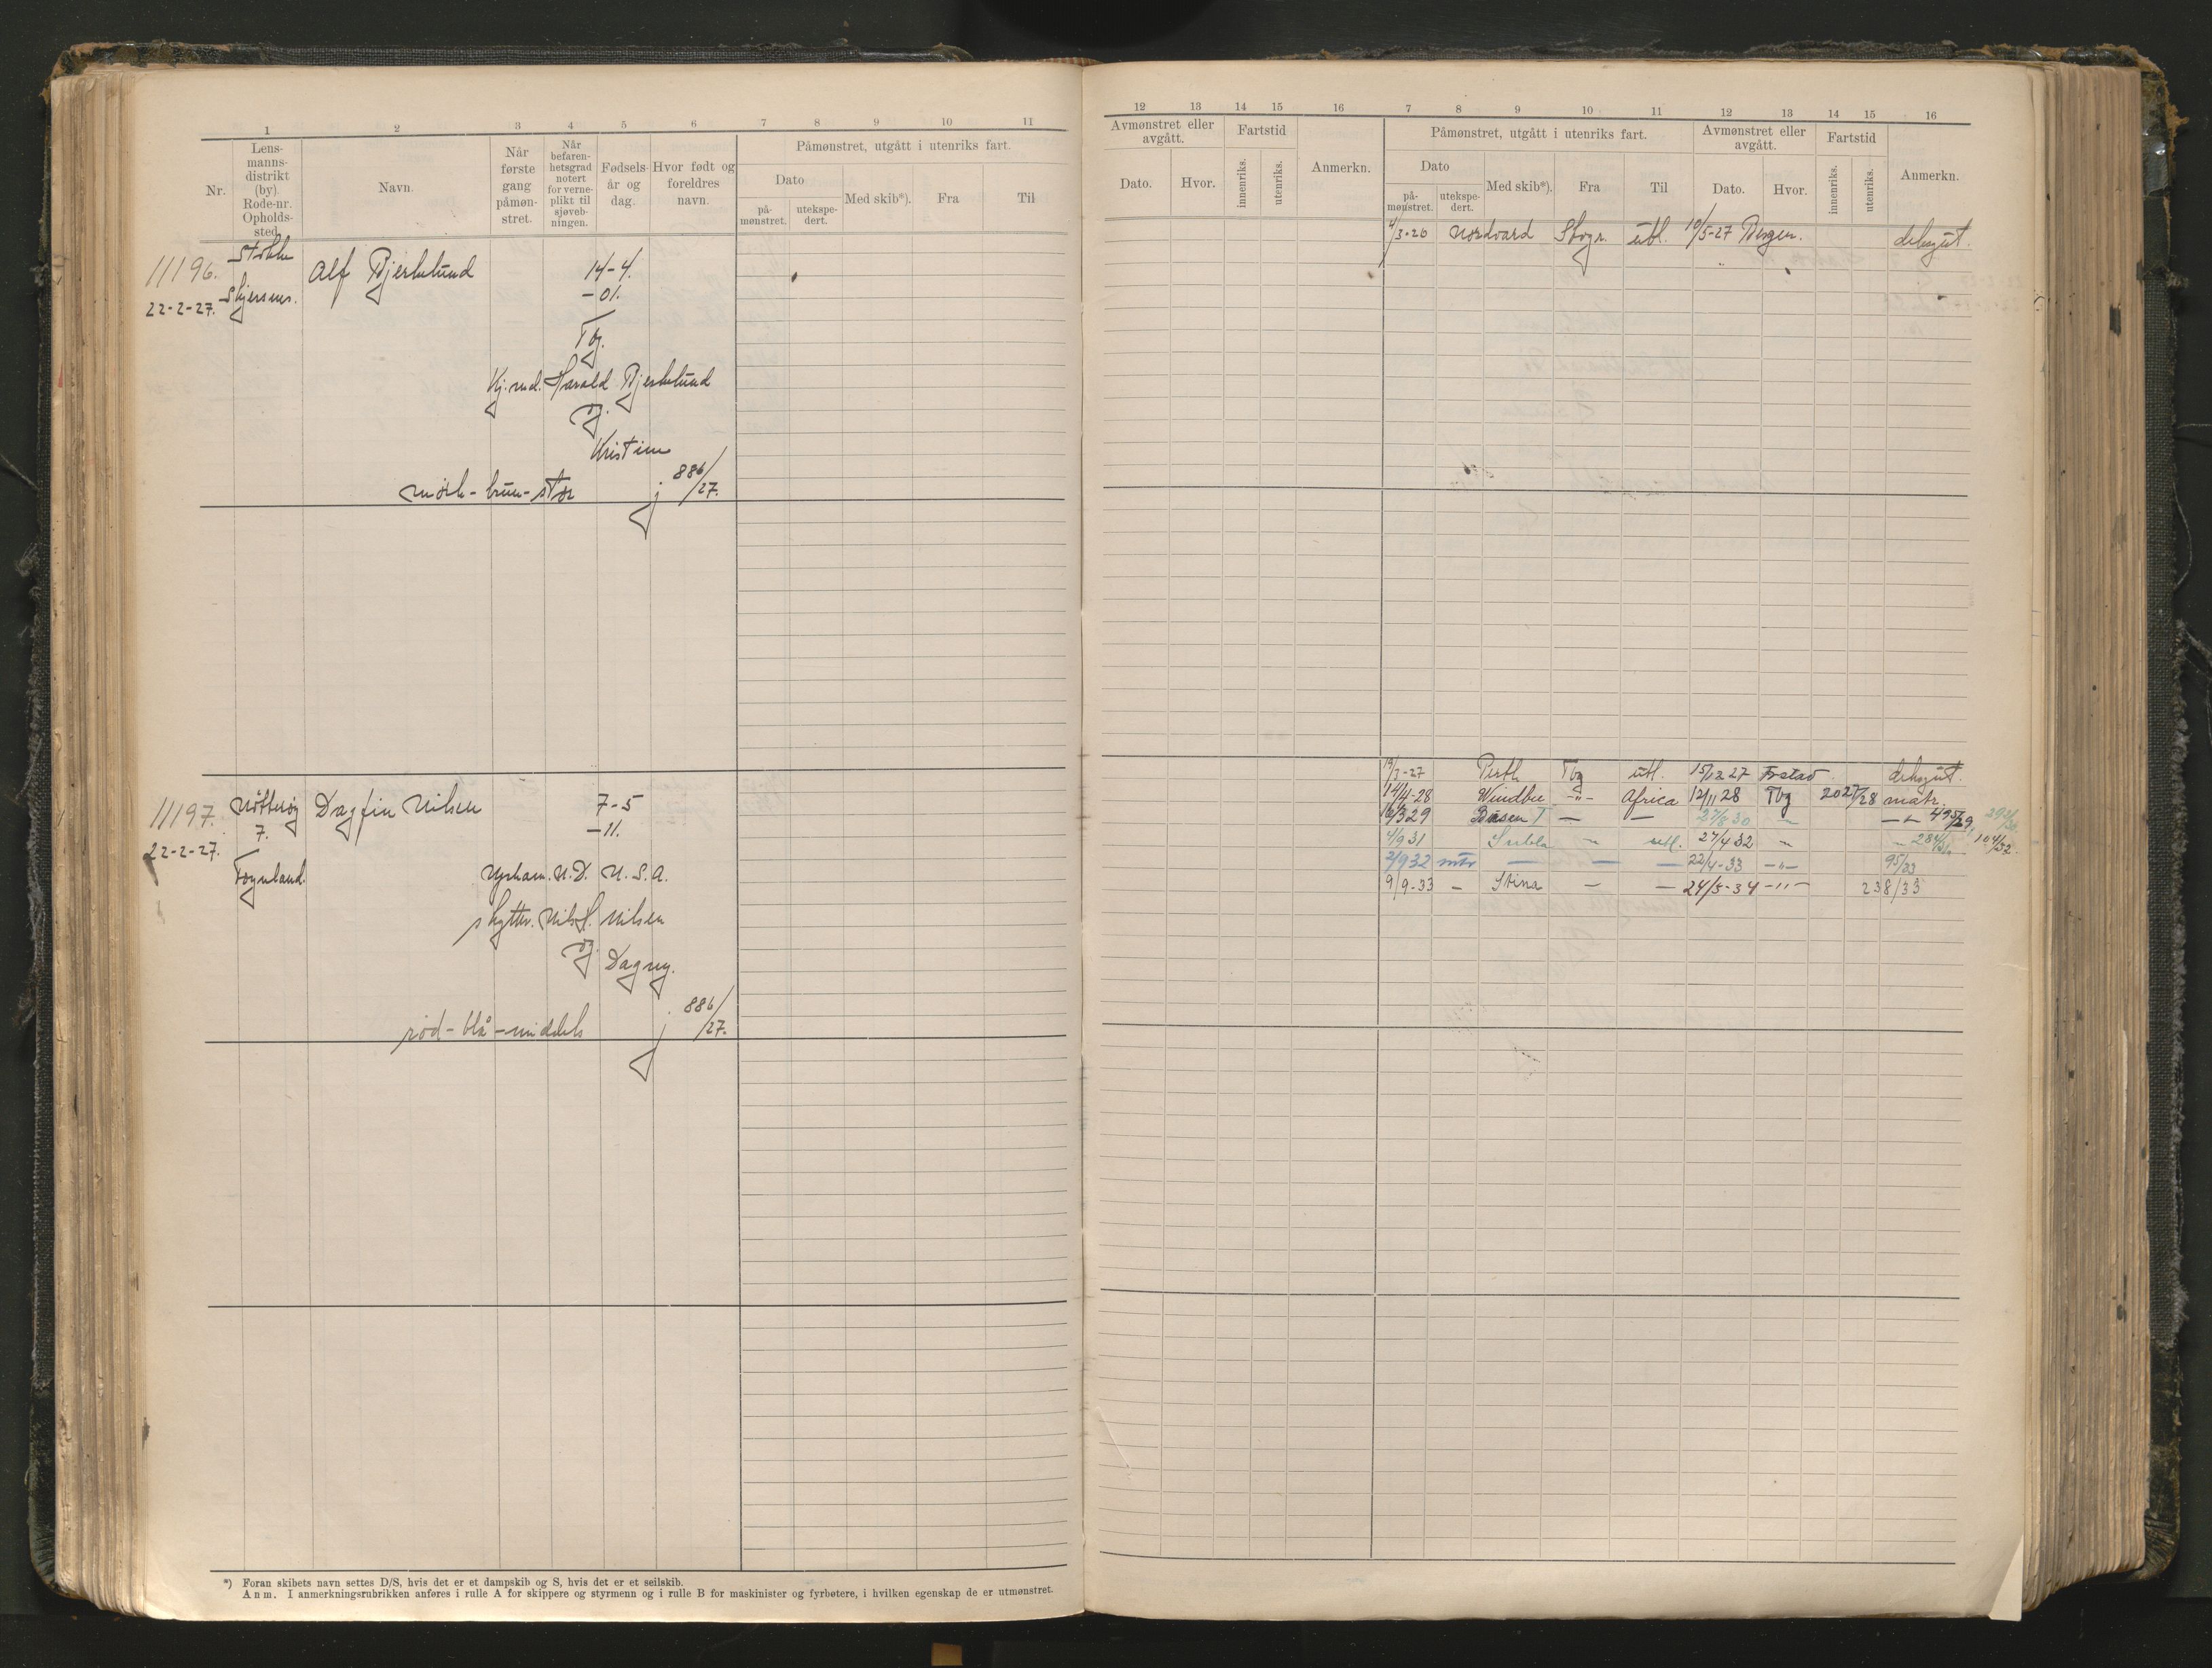 1 2 3 4 5 6 7 8 9 10 11
Nr.
Lens-
manns-
distrikt
(by).
Rode-nr.
Opholds-
sted.
Navn.
Når
første
gang
påmøn-
stret.
Når
befaren-
hetsgrad
notert
for verne-
plikt til
sjøveb-
ningen.
Fødsels-
år og
dag.
Hvor født og
foreldres
navn.
Påmønstret, utgått i utenriks fart.
Dato
på-
mønstret.
utekspe-
dert.
Med skib*).
Fra
Til
11196.
22-2-27.
Stokke
Alf Bjerkelund
14-4.
-01.
Tbg.
Kj.md. Harald Bjerkelund
og
Kristine
mørk-brun-stor
j 886/27.
11197.
22-2-27.
Nøtterøy
7.
Føynland.
Dagfin Nilsen
7-5
-11.
Upham. N.D. U.S.A.
skytter. Nils H. Nilsen
og
Dagny.
rød-blå-middels
j 886/27.
*) Foran skibets navn settes D/S, hvis det er et dampskib og S, hvis det er et seilskib.
Anm. I anmerkningsrubrikken anføres i rulle A for skippere og styrmenn og i rulle B for maskinister og fyrbøtere, i hvilken egenskap de er utmønstret.
12 13 14 15 16 7 8 9 10 11 12 13 14 15 16
Avmønstret eller
avgått.
Dato.
Hvor.
Fartstid
innenriks.
utenriks.
Anmerkn.
Påmønstret, utgått i utenriks fart.
Dato
på-
mønstret.
utekspe-
dert.
Med skib*).
Fra
Til
Avmønstret eller
avgått.
Dato.
Hvor.
Fartstid
innenriks.
utenriks.
Anmerkn.
Nordvard utl. 10/5-27 Bergen. deksgut.
Perth Tbg utl. 15/12 27 Frstad deksgut.
14/4-28 -"- Africa 12/11 28 Tbg 2027/28 matr.
16/3 29 — — 27/8 30 — 495/29
4/9 31 — utl. 27/4 32 — 284/31 104/32
2/9 32 mtr — — — 22/4-33 -"- 95/33
9/9-33 — Stina — — 24/5-34 -"- 238/33